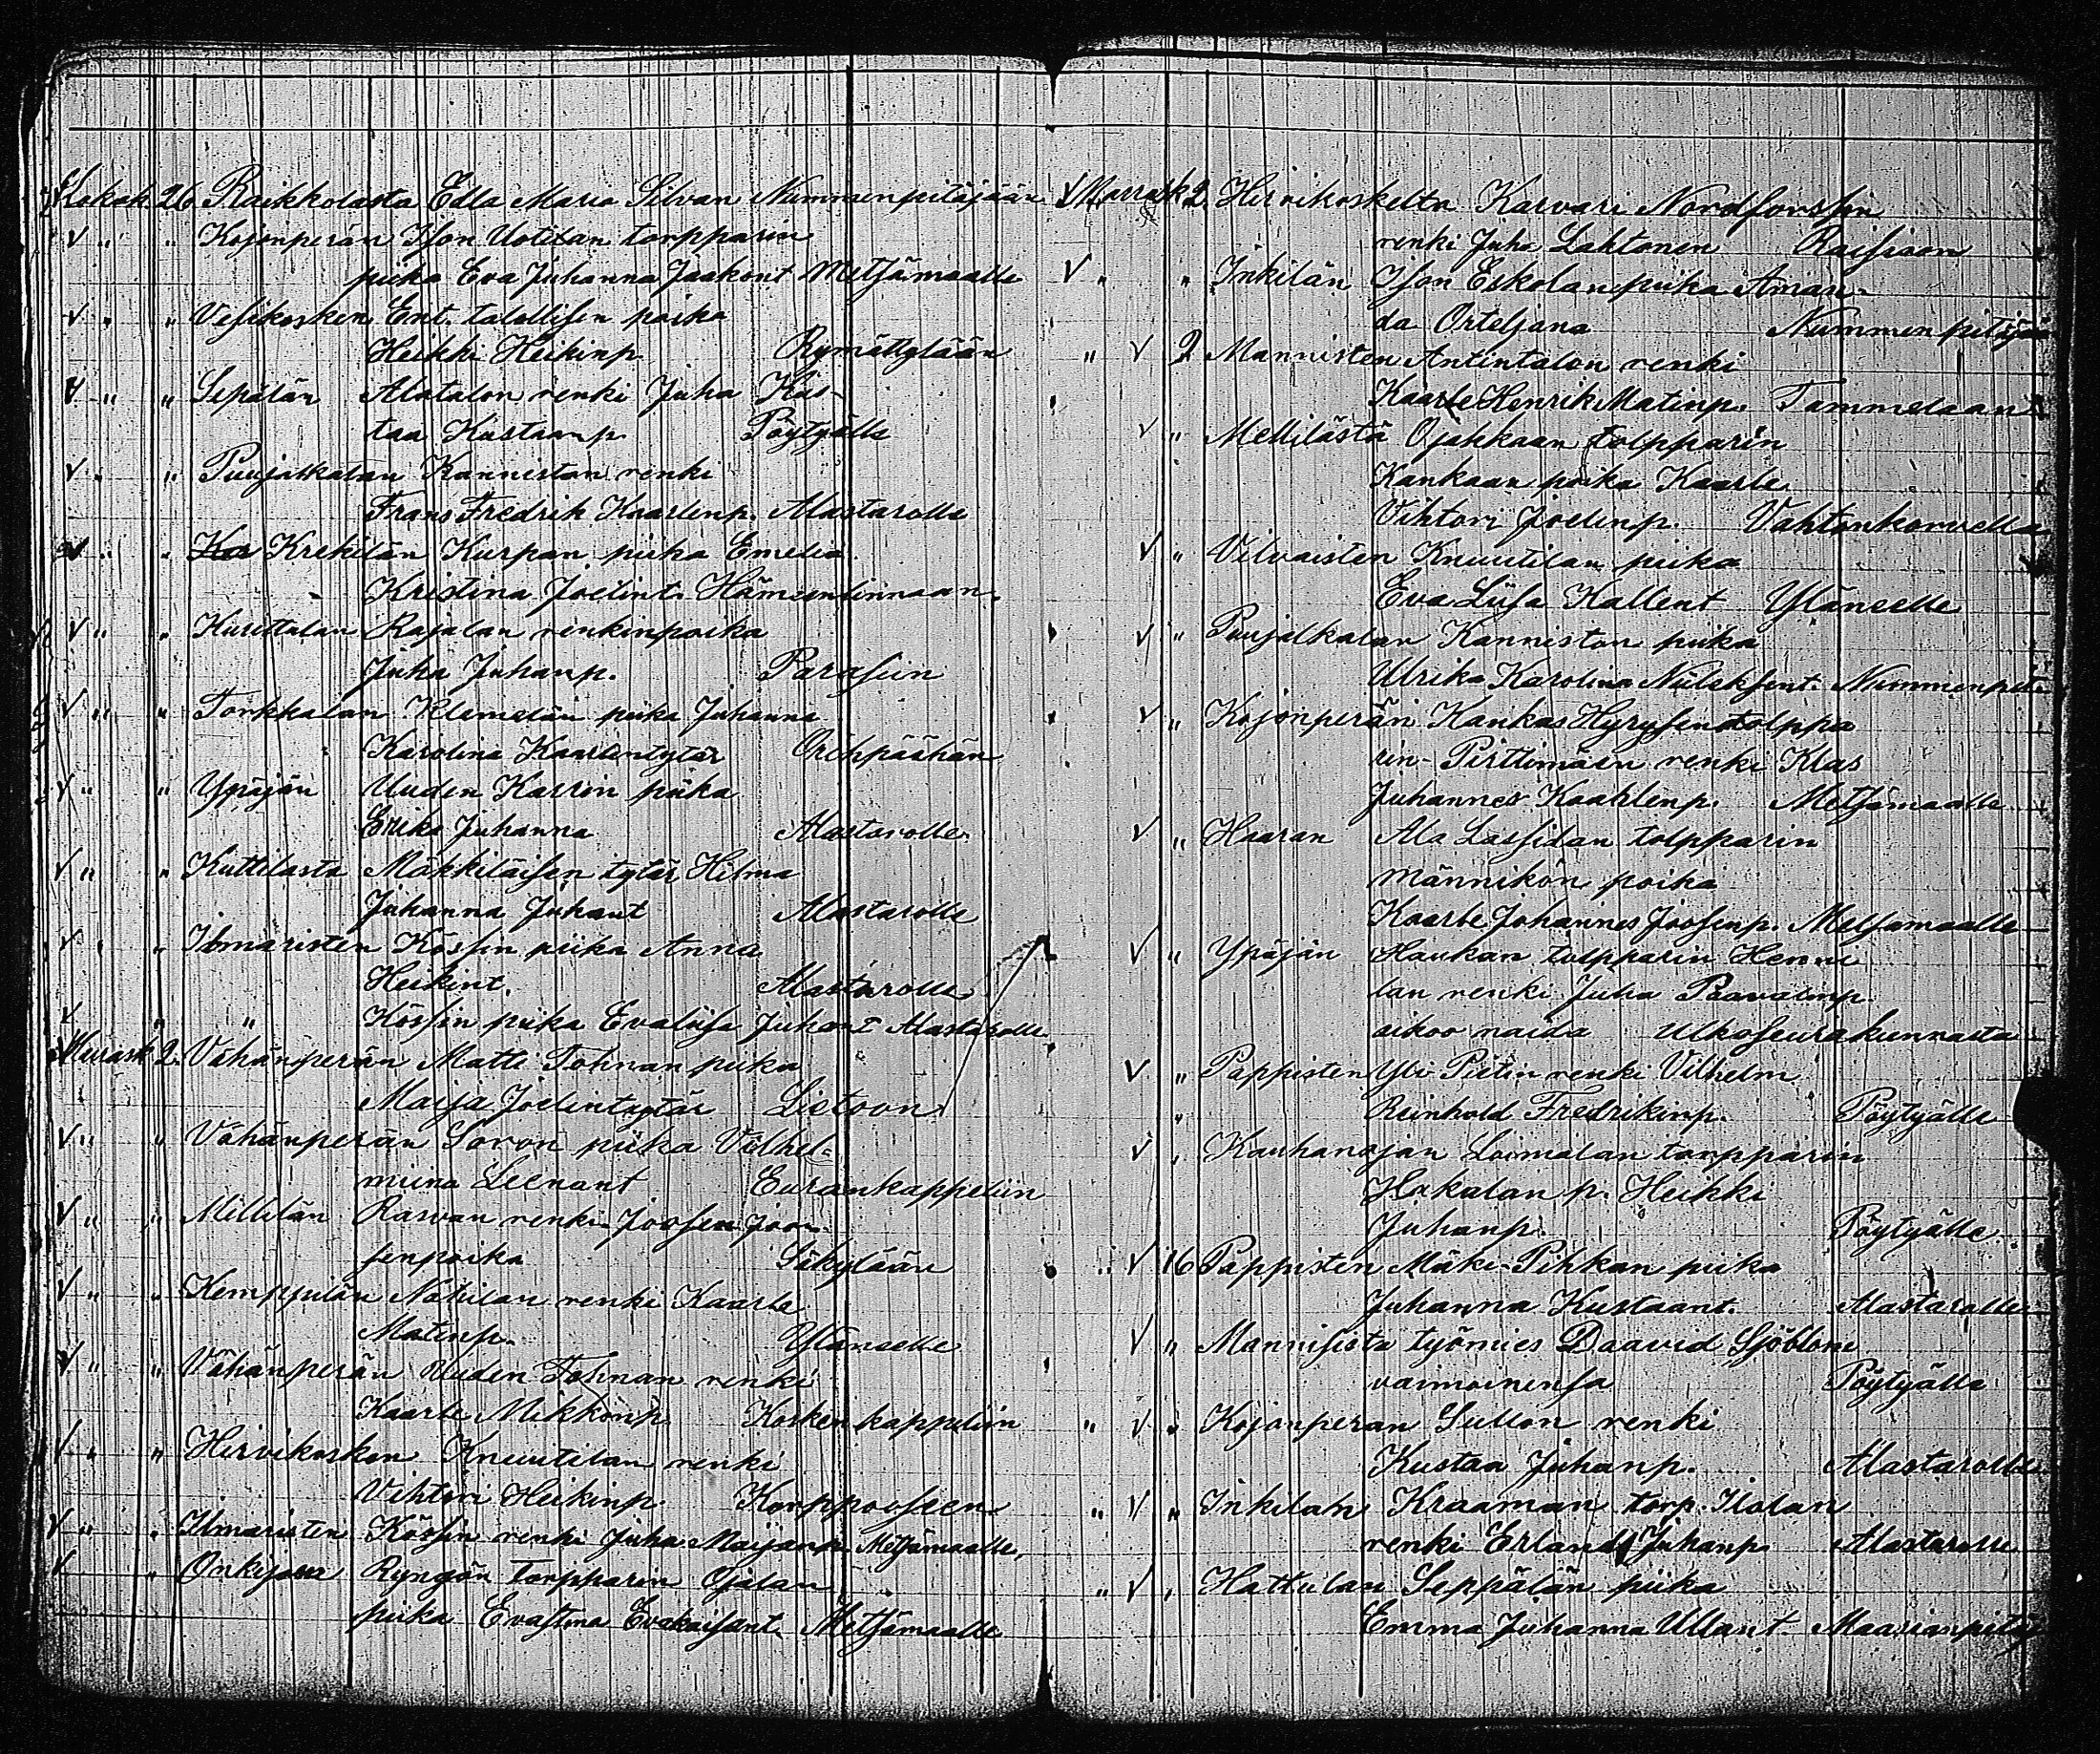 Lokak. 26 Raikkolasta Edla Maria Silvan Nummenpitäjään
" " Kojonperän Ison Uotilan torpparin
piika Eva Juhanna Jaakont Metsämaalle
" " Vesikosken Ent. talollisen poika
Heikki Heikinp. Rymättylään
" " Sepälän Alatalon renki Juha Kus-
taa Kustaanp. Pöytyälle
" " Puujalkalan Kanniston renki
Frans Fredrik Kaarlenp. Alastarolle
" " Krekilän Kurpan piika Emelia
Kristina Joelint. Hämeenlinnaan.
" " Kurittulan Rajalan renkinpoika
Juha Juhanp. Parasiin
" " Torkkalan Klemelän piika Juhanna
Karolina Kaarlentytär Orihpäähän
" " Ypäjän Uuden Karrin piika
Erika Juhanna Alastarolle.
" " Kuttilasta Mäkkiläisen tytär Hilma
Juhanna Juhant Alastarolle
" " Ilmaristen Kössin piika Anna
Heikint. Alastarolle
" " Kössin piika Evaliisa Juhant Alastarolle
Marrask 2. Vähänperän Matti Tohnan piika
Maija Joelintytär Lietoon
" " Vähänperän Soron piika Vilhel-
miina Leenant Eurankappeliin
" " Millilän Rasvan renki Joosen Joo-
senpoika Säkylään
" " Kemppilän Nohilan renki Kaarle
Matinp. Yläneelle
" " Vähänperän Uuden Tohnan renki
Kaarle Mikkonp. Kosken kappeliin
" " Hirvikosken Knuutilan renki
Vihtori Heikinp. Korppooseen
" " Ilmaristen Kössin renki Juha Maijanp. Metsämaalle.
" Onkijoen Ryngön Torpparin Ojalan
piika Evastina Evakaisant. Metsämaalle
Marrask 2. Hirvikoskelta Karvari Nordforssin
renki Juha Lahtonen Raisioon
" " Inkilän Ison Eskolan piika Aman-
da Orteljana Nummenpitäjää
" 2 Mannisten Antintalon renki
Kaarle Henrik Matinp. Tammelaan
" Mellilästä Ojahkaan tolpparin
Kankaan poika Kaarle
Vihtori Joelinp. Vahtonkorvella
" Vilvaisten Knuutilan piika
Eva Liisa Kallent Yläneelle
" Puujalkalan Kanniston piika
Ulrika Karolina Niileksent. Nummenpit.
" Kojonperän Kankas Hyrysen tolppa
rin- Pirttimäen renki Klas
Juhannes Kaahlenp. Metsämaalle
" Haaran Ala Lassilan tolpparin
männikön poika
Kaarle Johannes Joosenp. Metsamaalle
" Ypäjän Haukan tolpparin Henni
lan renki Juha Paavalinp.
aikoo naida ulkoseurakunnasta
" Pappisten Yli Pietin renki Vilhelm
" Reinhold Fredrikinp. Pöytyälle
" Kauhanojan Loimalan torpparin
Hakalan p. Heikki
Juhanp. Pöytyälle
" 16 Pappisten Mäki-Pihkan piika
Juhanna Kustaant. Alastarolle
" Mannisista työmies Daavid Sjöblom
vaimoinensa Pöytyälle
" " Kojonperan Sullon renki
Kustaa Juhanp. Alastarolle
" " Inkilän Kraaman torp. Ilolan
renki Erland Juhanp. Alastarolle
" " Hattulan Seppälän piika
Emma Juhanna Ullant Maarianpitäj